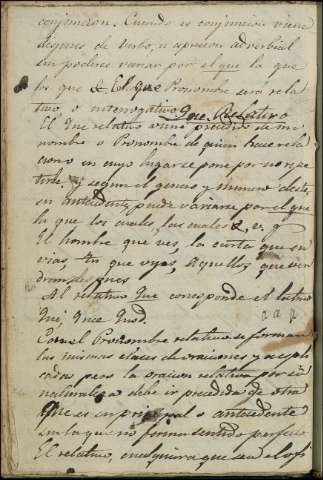 conjuncion. Cuando es conjuncion viene
despues de verbo, u espresion adverbial
sin poderse variar por el que la que
los que &. El que Pronombre sera rela
tivo, o interrogativo Que Relativo
El Que relativo viene precedido de un
nombre o Pronombre de quien hace rela
cion o en cuyo lugar se pone por no repe
tirle. y segun el genero y numero de este,
su antecedente, puede variarse por el que
la que los cuales, las cuales &. v. g
El hombre que ves, la carta que en
vias, tu que oyes, aquellos que ven
dran despues
Al relativo Que corresponde el latino
Qui, Quae Quod.
Con el Pronombre relativo se forman
las mismas clases de oraciones ya espli
cadas pero la oracion relativa por su
naturaleza debe ir precedida de otra
que es su principal o antecedente
sin la que no forma sentido perfecto
El relativo, cualquiera que sea el ofi